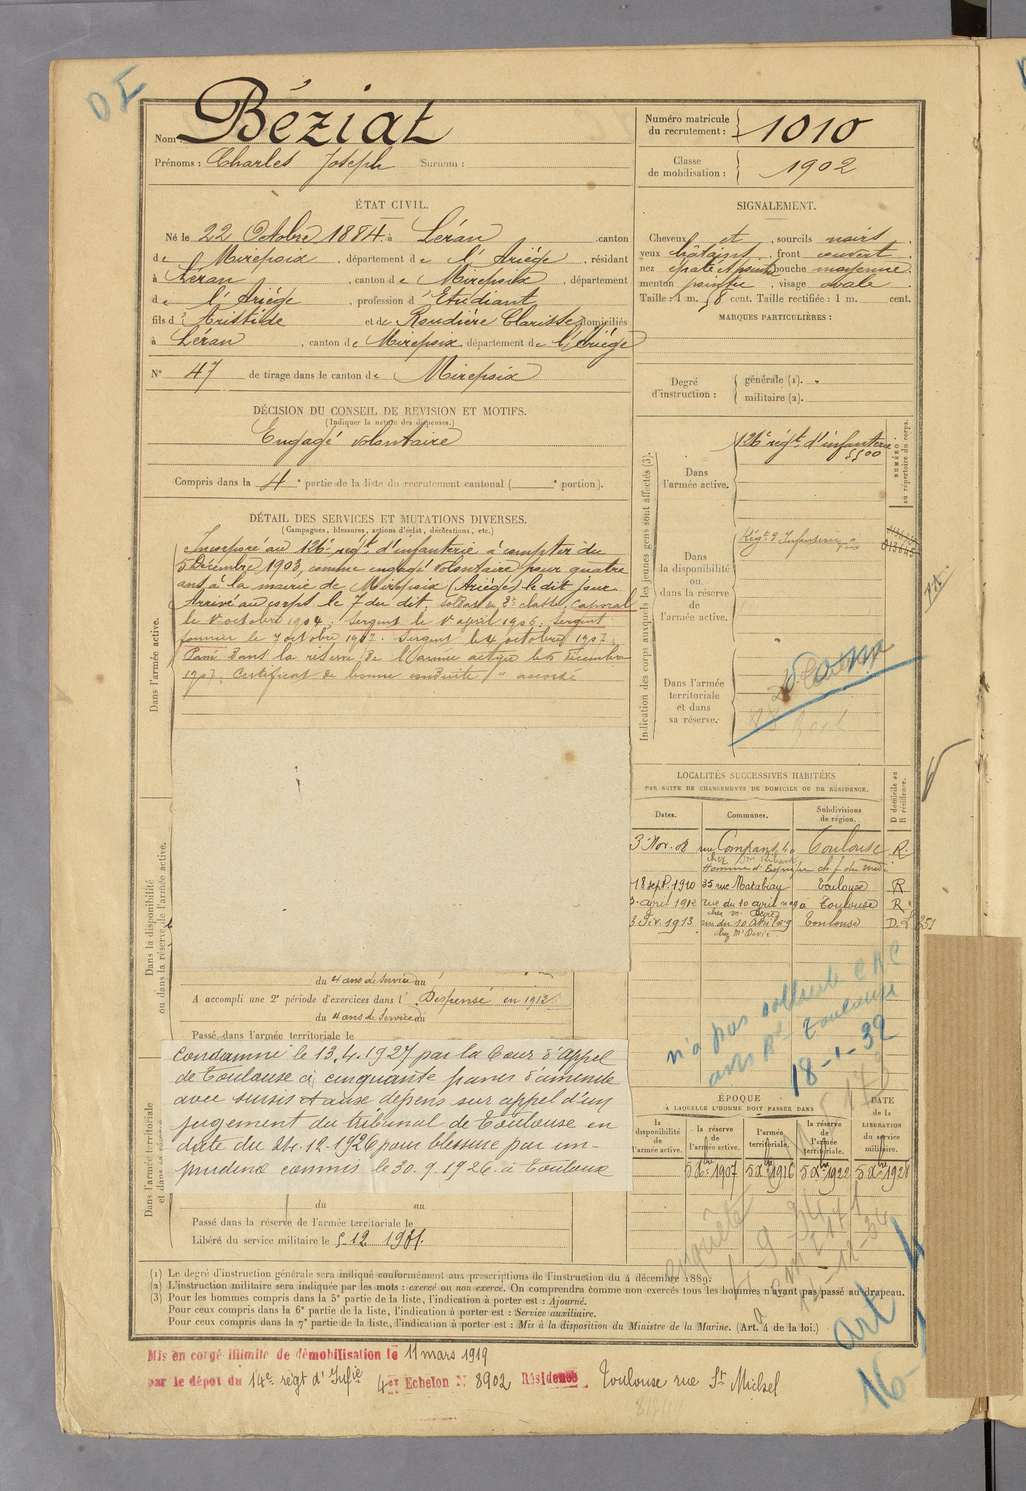 DI
Nom : Béziat
Prénoms : Charles Joseph Surnom :
Numéro matricule du recrutement : 1010
Classe de mobilisation : 1902
ÉTAT CIVIL.
Né le 22 Octobre 1884 à Léran , canton
de Mirepoix , département de l'Ariége , résidant
à Léran , canton de Mirepoix , département
de l'Ariége , profession d'Etudiant
fils d'Aristide et de Roudière Clarisse domiciliés
à Léran , canton de Mirepoix département de l'Ariége
N° 47 de tirage dans le canton de Mirepoix
SIGNALEMENT.
Cheveux et , sourcils noirs
yeux châtains , front couvert
nez épaté , bouche moyenne
menton pointu , visage ovale
Taille : 1 m. 58 cent. Taille rectifiée : 1 m. cent.
MARQUES PARTICULIÈRES :
Degré d'instruction : générale (1).
militaire (2).
DÉCISION DU CONSEIL DE REVISION ET MOTIFS.
(Indiquer la nature des dispenses.)
Engagé volontaire
Compris dans la 4e partie de la liste du recrutement cantonal ( e portion).
DÉTAIL DES SERVICES ET MUTATIONS DIVERSES.
(Campagnes, blessures, actions d'éclat, décorations, etc.)
Dans l'armée active.
Incorporé au 126e régt d'infanterie à compter du
5 Décembre 1903, comme engagé volontaire pour quatre
ans à la mairie de Mirepoix (Ariége) le dit jour
Arrivé au corps le 7 du dit, soldat de 2e classe, caporal
le 1er octobre 1904. Sergent le 1er avril 1906. Sergent
fourrier le 7 octobre 1907. Sergent le 4 octobre 1907.
Passé dans la réserve de l'armée active le 5 décembre
1907. Certificat de bonne conduite accordé
Dans la disponibilité
ou dans la réserve de l'armée active.
du 4 ans de service au
A accompli une 2e période d'exercices dans l Dispensé en 1912
du 4 ans de service au
Passé dans l'armée territoriale le
Dans l'armée territoriale
Condamné le 13.4.1927 par la Cour d'appel
de Toulouse à cinquante francs d'amende
avec sursis et aux dépens sur appel d'un
jugement du tribunal de Toulouse en
date du 24-12-1926 pour blessure par im-
prudence commis le 30.9.1926 à Toulouse
du au
Passé dans la réserve de l'armée territoriale le
Libéré du service militaire le
Indication des corps auxquels les jeunes gens sont affectés (3).
NUMÉRO au répertoire du corps.
Dans l'armée active.
126e régt d'infanterie
5500
Dans la disponibilité ou dans la réserve de l'armée active.
Régt d'Infanterie
Dans l'armée territoriale et dans sa réserve.
LOCALITÉS SUCCESSIVES HABITÉES
PAR SUITE DE CHANGEMENTS DE DOMICILE OU DE RÉSIDENCE.
Dates. Communes. Subdivisions de région. D domicile ou R résidence.
3 Nov. 08 rue Compans Toulouse R.
18 sept. 1910 35 rue Matabiau Toulouse R
3 avril 1912 rue du 10 avril Toulouse R
3 Fév. 1913 rue du 10 avril n° 9 Toulouse
n'a pas
Toulouse
18-1-32
ÉPOQUE
À LAQUELLE L'HOMME DOIT PASSER DANS
la disponibilité de l'armée active. la réserve de l'armée active. l'armée territoriale. la réserve de l'armée territoriale. DATE de la LIBÉRATION du service militaire.
5 Xbre 1907 5 Xbre 1916 5 Xbre 1922 5 Xbre 1928
enquête
art 4
16-
(1) Le degré d'instruction générale sera indiqué conformément aux prescriptions de l'instruction du 4 décembre 1889.
(2) L'instruction militaire sera indiquée par les mots : exercé ou non exercé. On comprendra comme non exercés tous les hommes n'ayant pas passé au drapeau.
(3) Pour les hommes compris dans la 5e partie de la liste, l'indication à porter est : Ajourné.
Pour ceux compris dans la 6e partie de la liste, l'indication à porter est : Service auxiliaire.
Pour ceux compris dans la 7e partie de la liste, l'indication à porter est : Mis à la disposition du Ministre de la Marine. (Art. 4 de la loi.)
Mis en congé illimité de démobilisation le 11 mars 1919
par le dépôt du 14e régt d'Infie 4e Echelon N° 8902 Résidence Toulouse rue St Michel